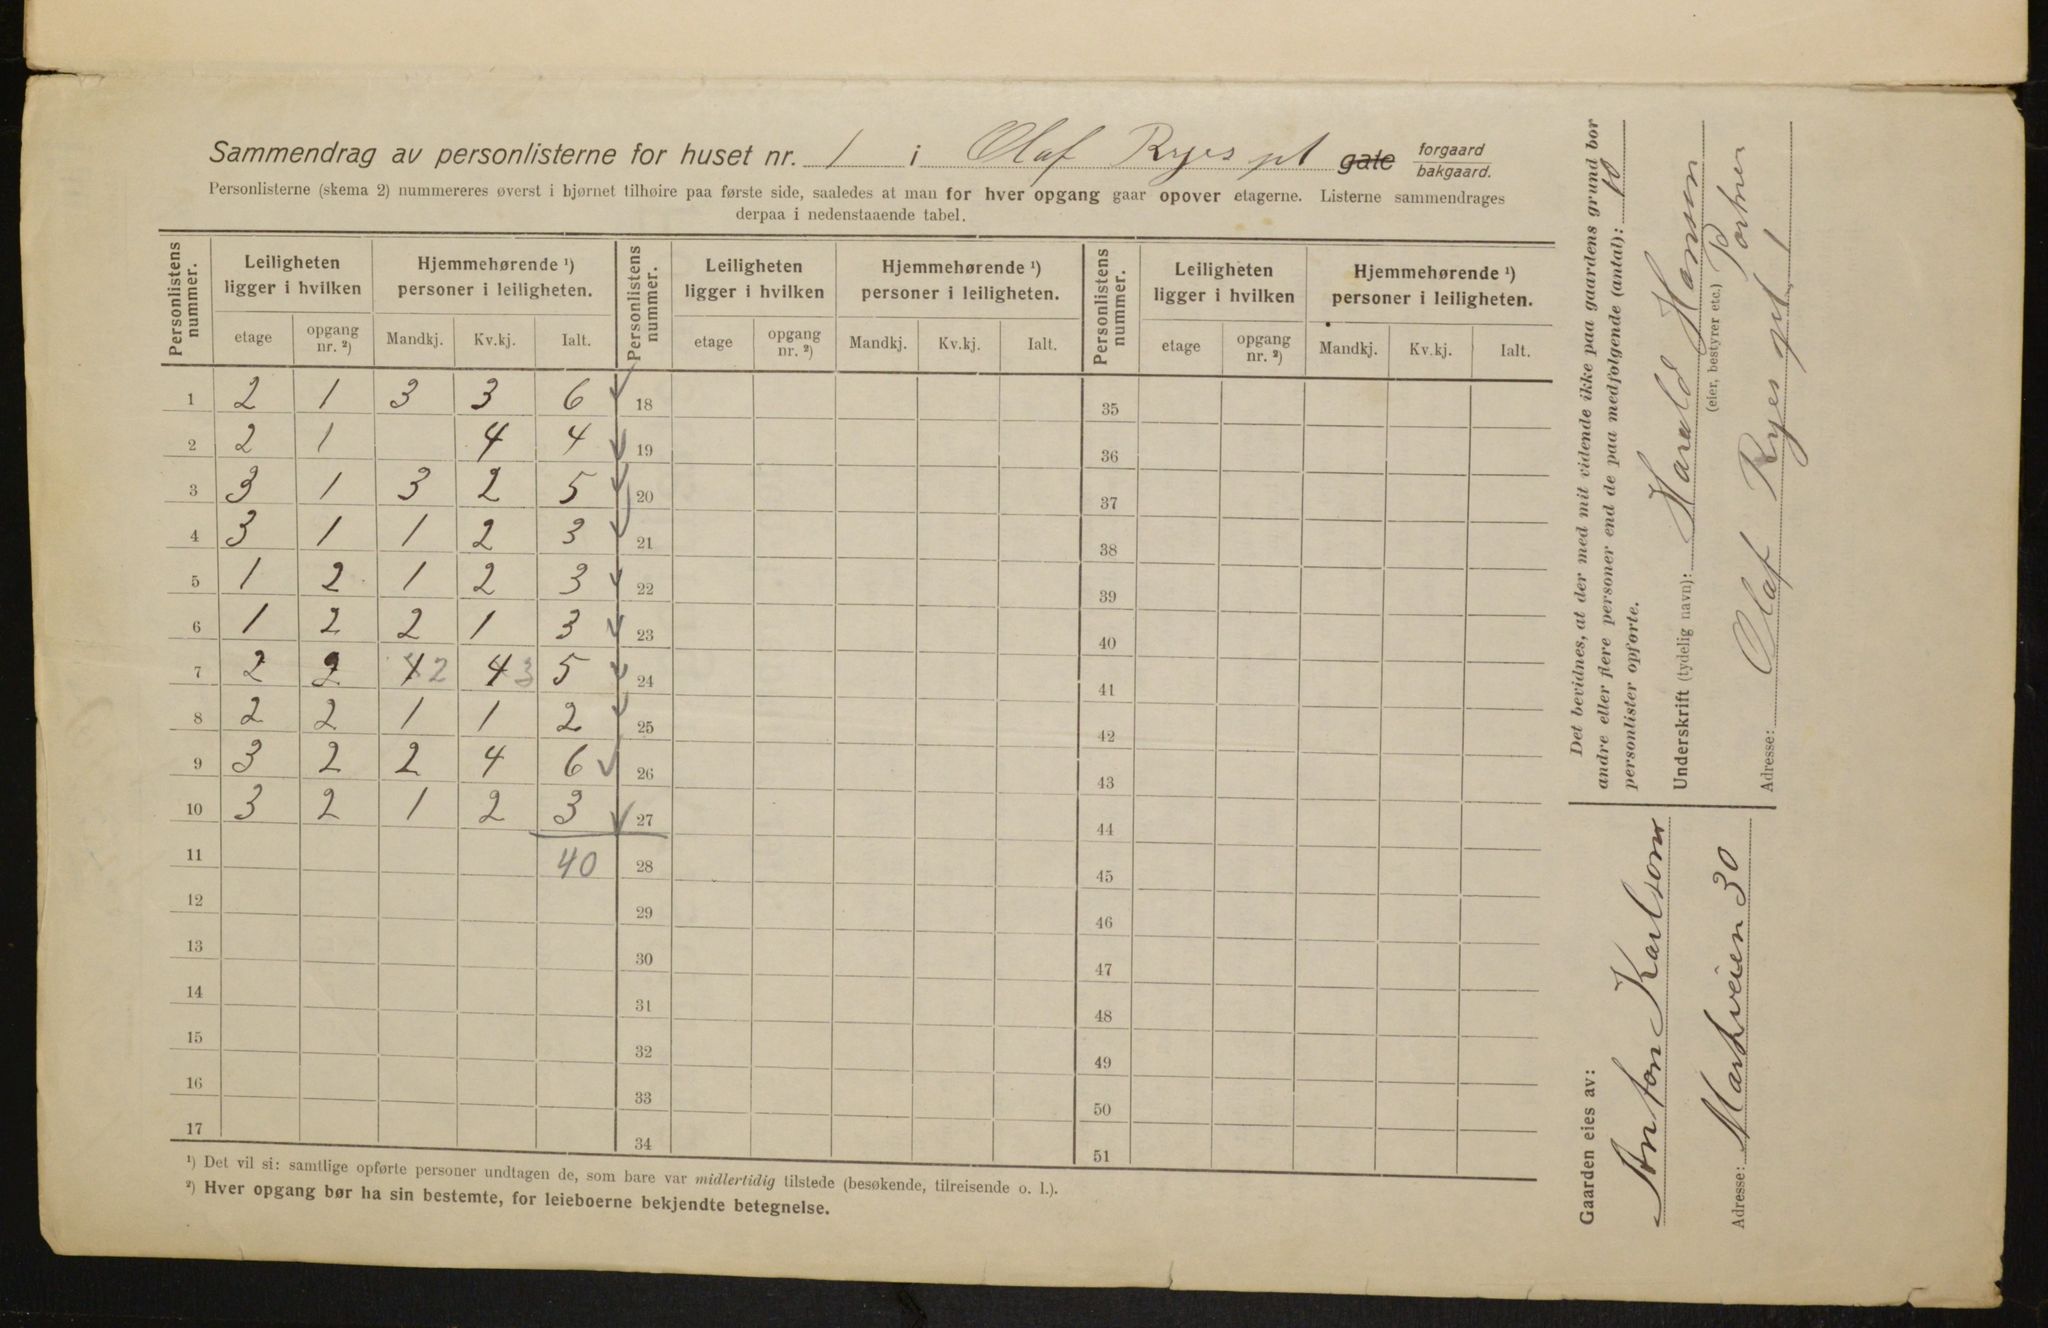 Sammendrag av personlisterne for huset nr. 1 i Olaf Ryes pl gate forgaard bakgaard.
Personlisterne (skema 2) nummereres øverst i hjørnet tilhøire paa første side, saaledes at man for hver opgang gaar opover etagerne. Listerne sammendrages
derpaa i nedenstaaende tabel.
Personlistens nummer. Leiligheten ligger i hvilken Hjemmehørende ¹) personer i leiligheten. Personlistens nummer. Leiligheten ligger i hvilken Hjemmehørende ¹) personer i leiligheten. Personlistens nummer. Leiligheten ligger i hvilken Hjemmehørende ¹) personer i leiligheten.
etage opgang nr. ²) Mandkj. Kv.kj. Ialt. etage opgang nr. ²) Mandkj. Kv.kj. Ialt. etage opgang nr. ²) Mandkj. Kv.kj. Ialt.
1 2 1 3 3 6 18 35
2 2 1 4 4 19 36
3 3 1 3 2 5 20 37
4 3 1 1 2 3 21 38
5 1 2 1 2 3 22 39
6 1 2 2 1 3 23 40
7 2 2 1 2 4 3 5 24 41
8 2 2 1 1 2 25 42
9 3 2 2 4 6 26 43
10 3 2 1 2 3 27 44
11 40 28 45
12 29 46
13 30 47
14 31 48
15 32 49
16 33 50
17 34 51
¹) Det vil si: samtlige opførte personer undtagen de, som bare var midlertidig tilstede (besøkende, tilreisende o. l.).
²) Hver opgang bør ha sin bestemte, for leieboerne bekjendte betegnelse.
Det bevidnes, at der med mit vidende ikke paa gaardens grund bor
andre eller flere personer end de paa medfølgende (antal): 10
personlister opførte.
Underskrift (tydelig navn): Harald Hansen
(eier, bestyrer etc.) Portner
Adresse: Olaf Ryes pl 1
Gaarden eies av:
Anton Karlson
Adresse: Markveien 30